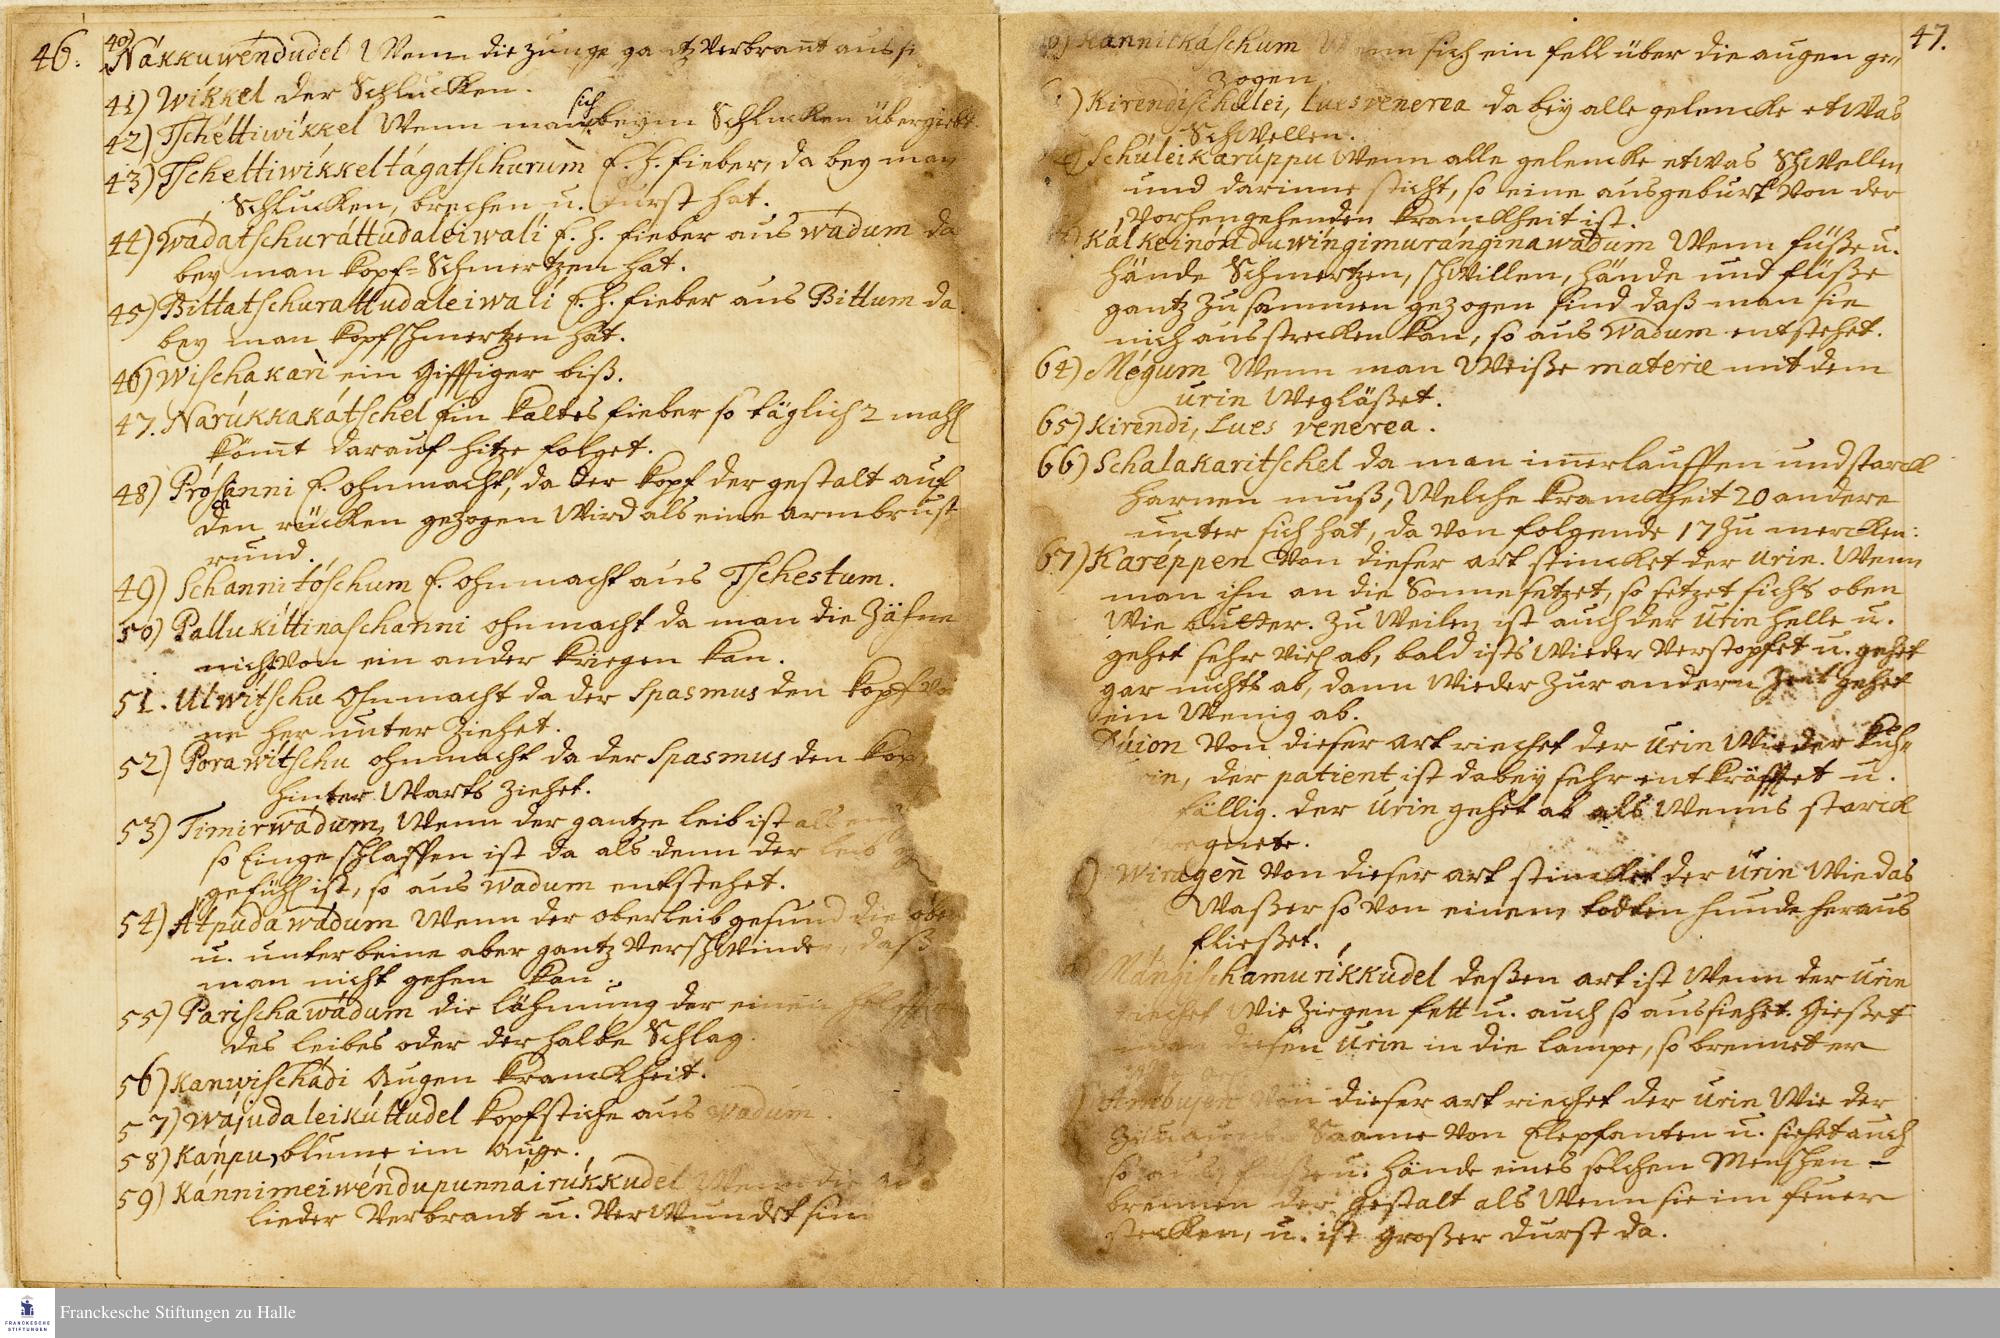 46.
40) Nákkuwéndudel Wenn die zunge gantz verbrant
41) Wíkkel der Schlucken.
42) Tschéttiwíkkel Wenn man sich beym Schlucken übergiebt
43) Tschettiwíkkeltágatschurum E. h. fieber, da bey man
Schlucken, brechen u. durst hat.
44) Wádatschuráttudaleiwali E. h. fieber aus wádum da
bey man kopf=Schmertzen hat.
45) Bittatschurattudaleiwalí E. h. fieber aus Bittum da
bey man kopfschmertzen hat.
46) Wischakari ein Gifftiger biß.
47. Narúkkakátschel Ein kaltes fieber so täglich 2 mahl
kömt darauf hitze folget.
48) Prósanni E. ohnmacht, da der kopf der gestalt auf
den rücken gezogen wird als eine armbrust
rund.
49) Schannitóschum E. ohnmacht aus Tschestum.
50) Pallukíttinaschanni ohnmacht da man die Zähne
nicht von ein ander kriegen kan.
51. Ulwítschu Ohnmacht da der Spasmus den kopf
ne her unter ziehet.
52) Porawítschu ohnmacht da der Spasmus den
hinter warts ziehet.
53) Timirwádum, Wenn der gantze leib ist als
so Eingeschlaffen ist da als denn der leib
gefühl ist, so aus wadum entstehet.
54) Átpudawádum Wenn der oberleib gesund die
u. unterbeine aber gantz verschwinden, daß
man nicht gehen kan.
55) Parischawádum die lähmung der einen
des leibes oder der halbe Schlag.
56) Kanwischádi Augen kranckheit.
57) Wájudaleikúttudel kopfstiche aus wadum.
58) Kánpu, blume im Auge.
59) Kánnimeiwéndupunnáirúkkudel Wenn die
lieder verbrant u. verwundet sein
47.
Kannickáschum Wenn sich ein fell über die augen ge=
zogen
Kirendischúlei, Lues venerea da bey alle gelencke etwas
Schwellen.
Schúleikarúppu Wenn alle gelencke etwas schwellen,
und darinne sticht, so eine ausgeburt von der
vorhergehenden kranckheit ist.
Kálkeinónduwíngimuránginawádum Wenn füße u.
hände Schmertzen, schwillen, hände und füße
gantz zusammen gezogen sind daß man sie
nich ausstrecken kan, so aus Wadum entstehet.
64) Mégum Wenn man Weiße materie mit dem
urin wegläßet.
65) Kirendi, Lues venerea.
66) Schalakaritschel da man imerlauffen und starck
harnen muß, Welche kranckheit 20 andere
unter sich hat, da von folgende 17 zu mercken:
67) Karéppen Von dieser art stincket der urin. Wenn
man ihn an die Sonne setzet, so setzet sichs oben
Wie butter. Zu weilen ist auch der urin helle u.
gehet sehr viel ab, bald ists wieder verstopfet u. gehet
gar nichts ab, dann wieder zur andern Zeit gehet
ein Wenig ab.
Von dieser art riechet der Urin wie der Kuh=
der patient ist dabey sehr entkräfftet u.
fällig. der Urin gehet ab als Wenns starck
regnete.
Wiragen Von dieser art stincket der Urin wie das
Waßer so von einem todten hunde heraus
fließet.
Mángischamuríkkudel deßen art ist Wenn der Urin
riechet wie Ziegen fett u. auch so aussiehet. Gießet
man diesen Urin in die lampe, so brennet er
von dieser art riechet der Urin wie der
Saame von Elephanten u. siehet auch
so aus, füße u. hände eines solchen Menschen
brennen der gestalt als Wenn sie im feuer
stecken, u. ist großer durst da.
FRANCKESCHE
STIFTUNGEN
Franckesche Stiftungen zu Halle